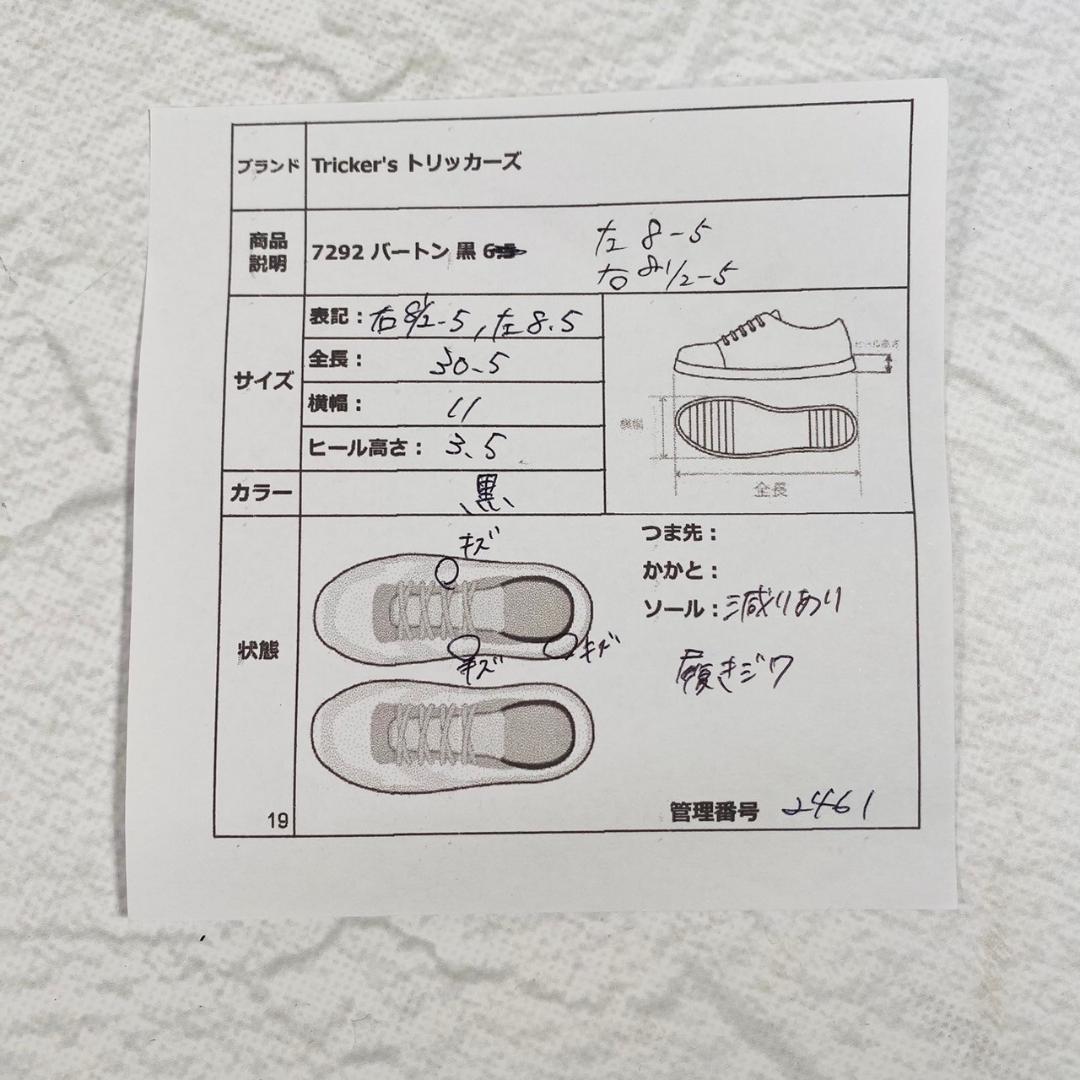 ブランド Tricker's トリッカーズ
商品説明 7292 バートン 黒 6
左 8-5
右 8 1/2-5
サイズ
表記： 右8 1/2-5, 左8.5
全長： 30.5
横幅： 11
ヒール高さ： 3.5
ヒール高さ
横幅
全長
カラー 黒
状態
キズ
キズ
キズ
つま先：
かかと：
ソール： 減りあり
履きジワ
管理番号 2461
19